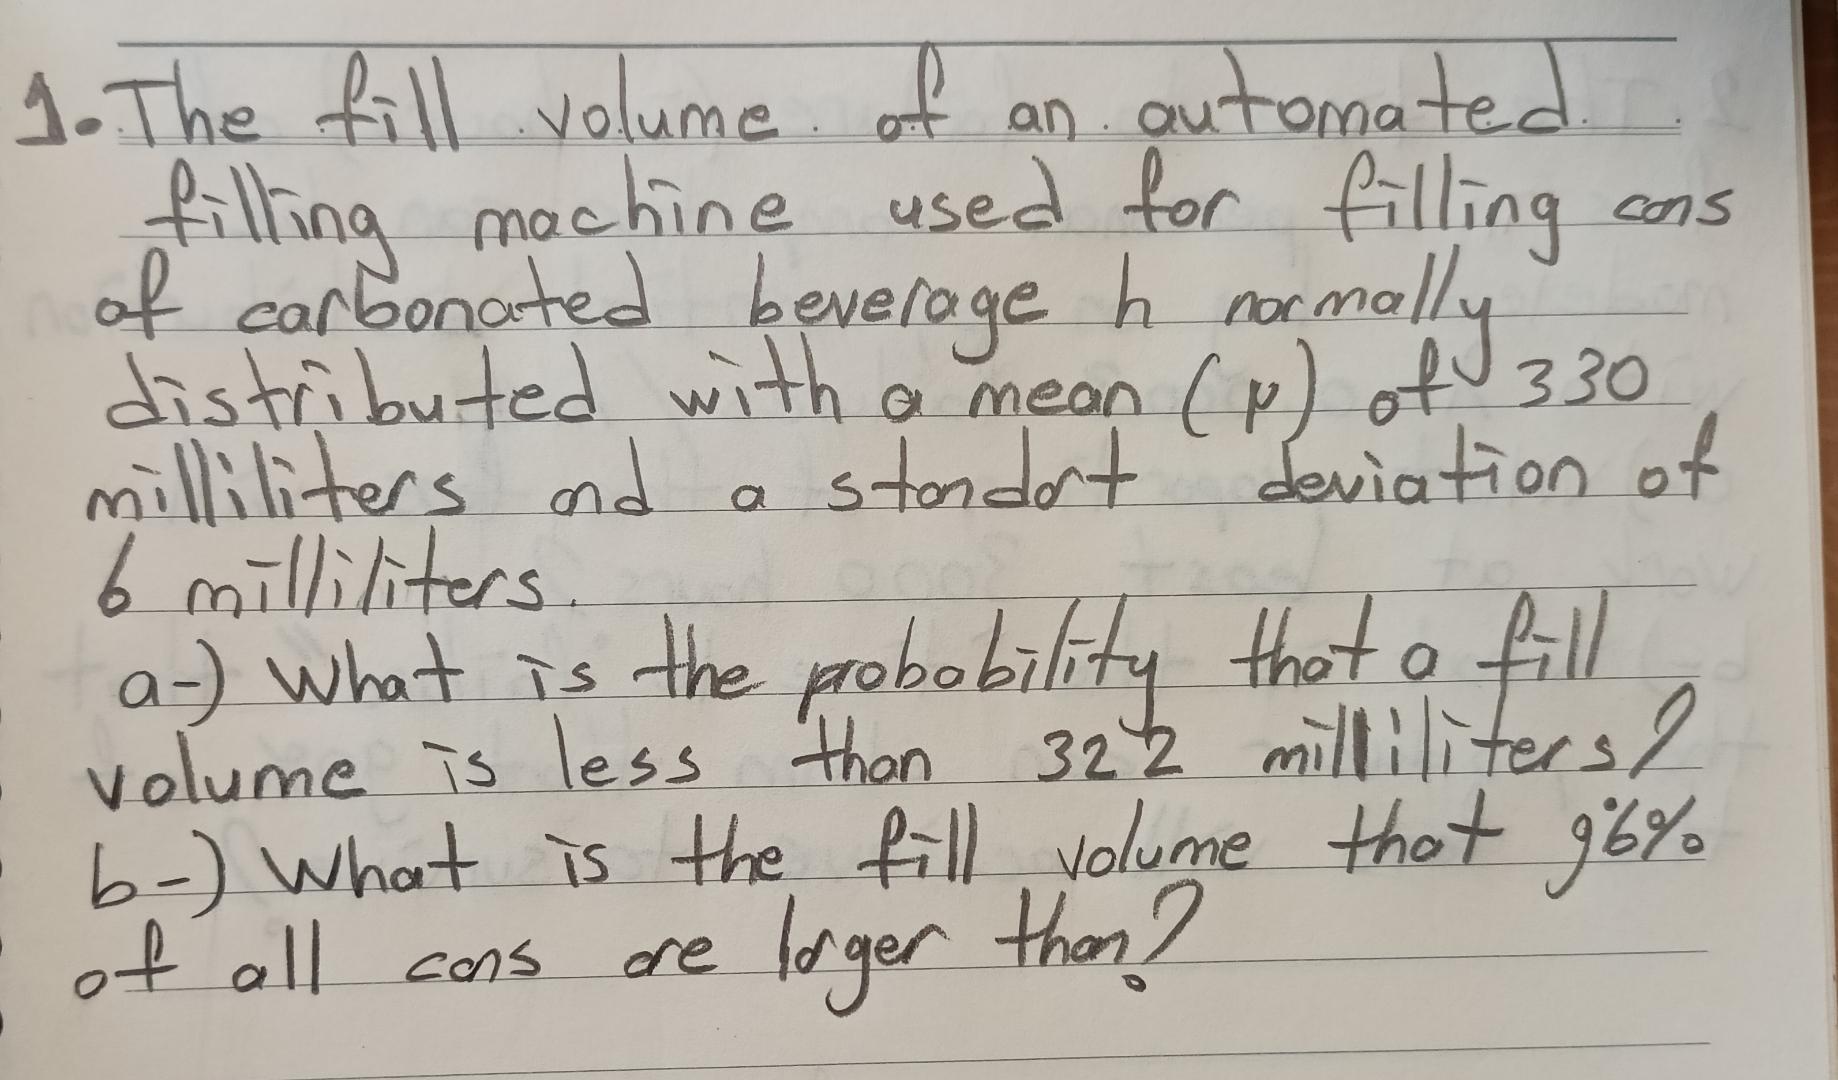 1. The fill volume of an automated
filling machine used for filling cans
of carbonated beverage h normally
distributed with a mean (μ) of 330
milliliters and a standart deviation of
6 milliliters.
a-) What is the probability that a fill
volume is less than 322 milliliters?
b-) What is the fill volume that 96%
of all cans are larger than?